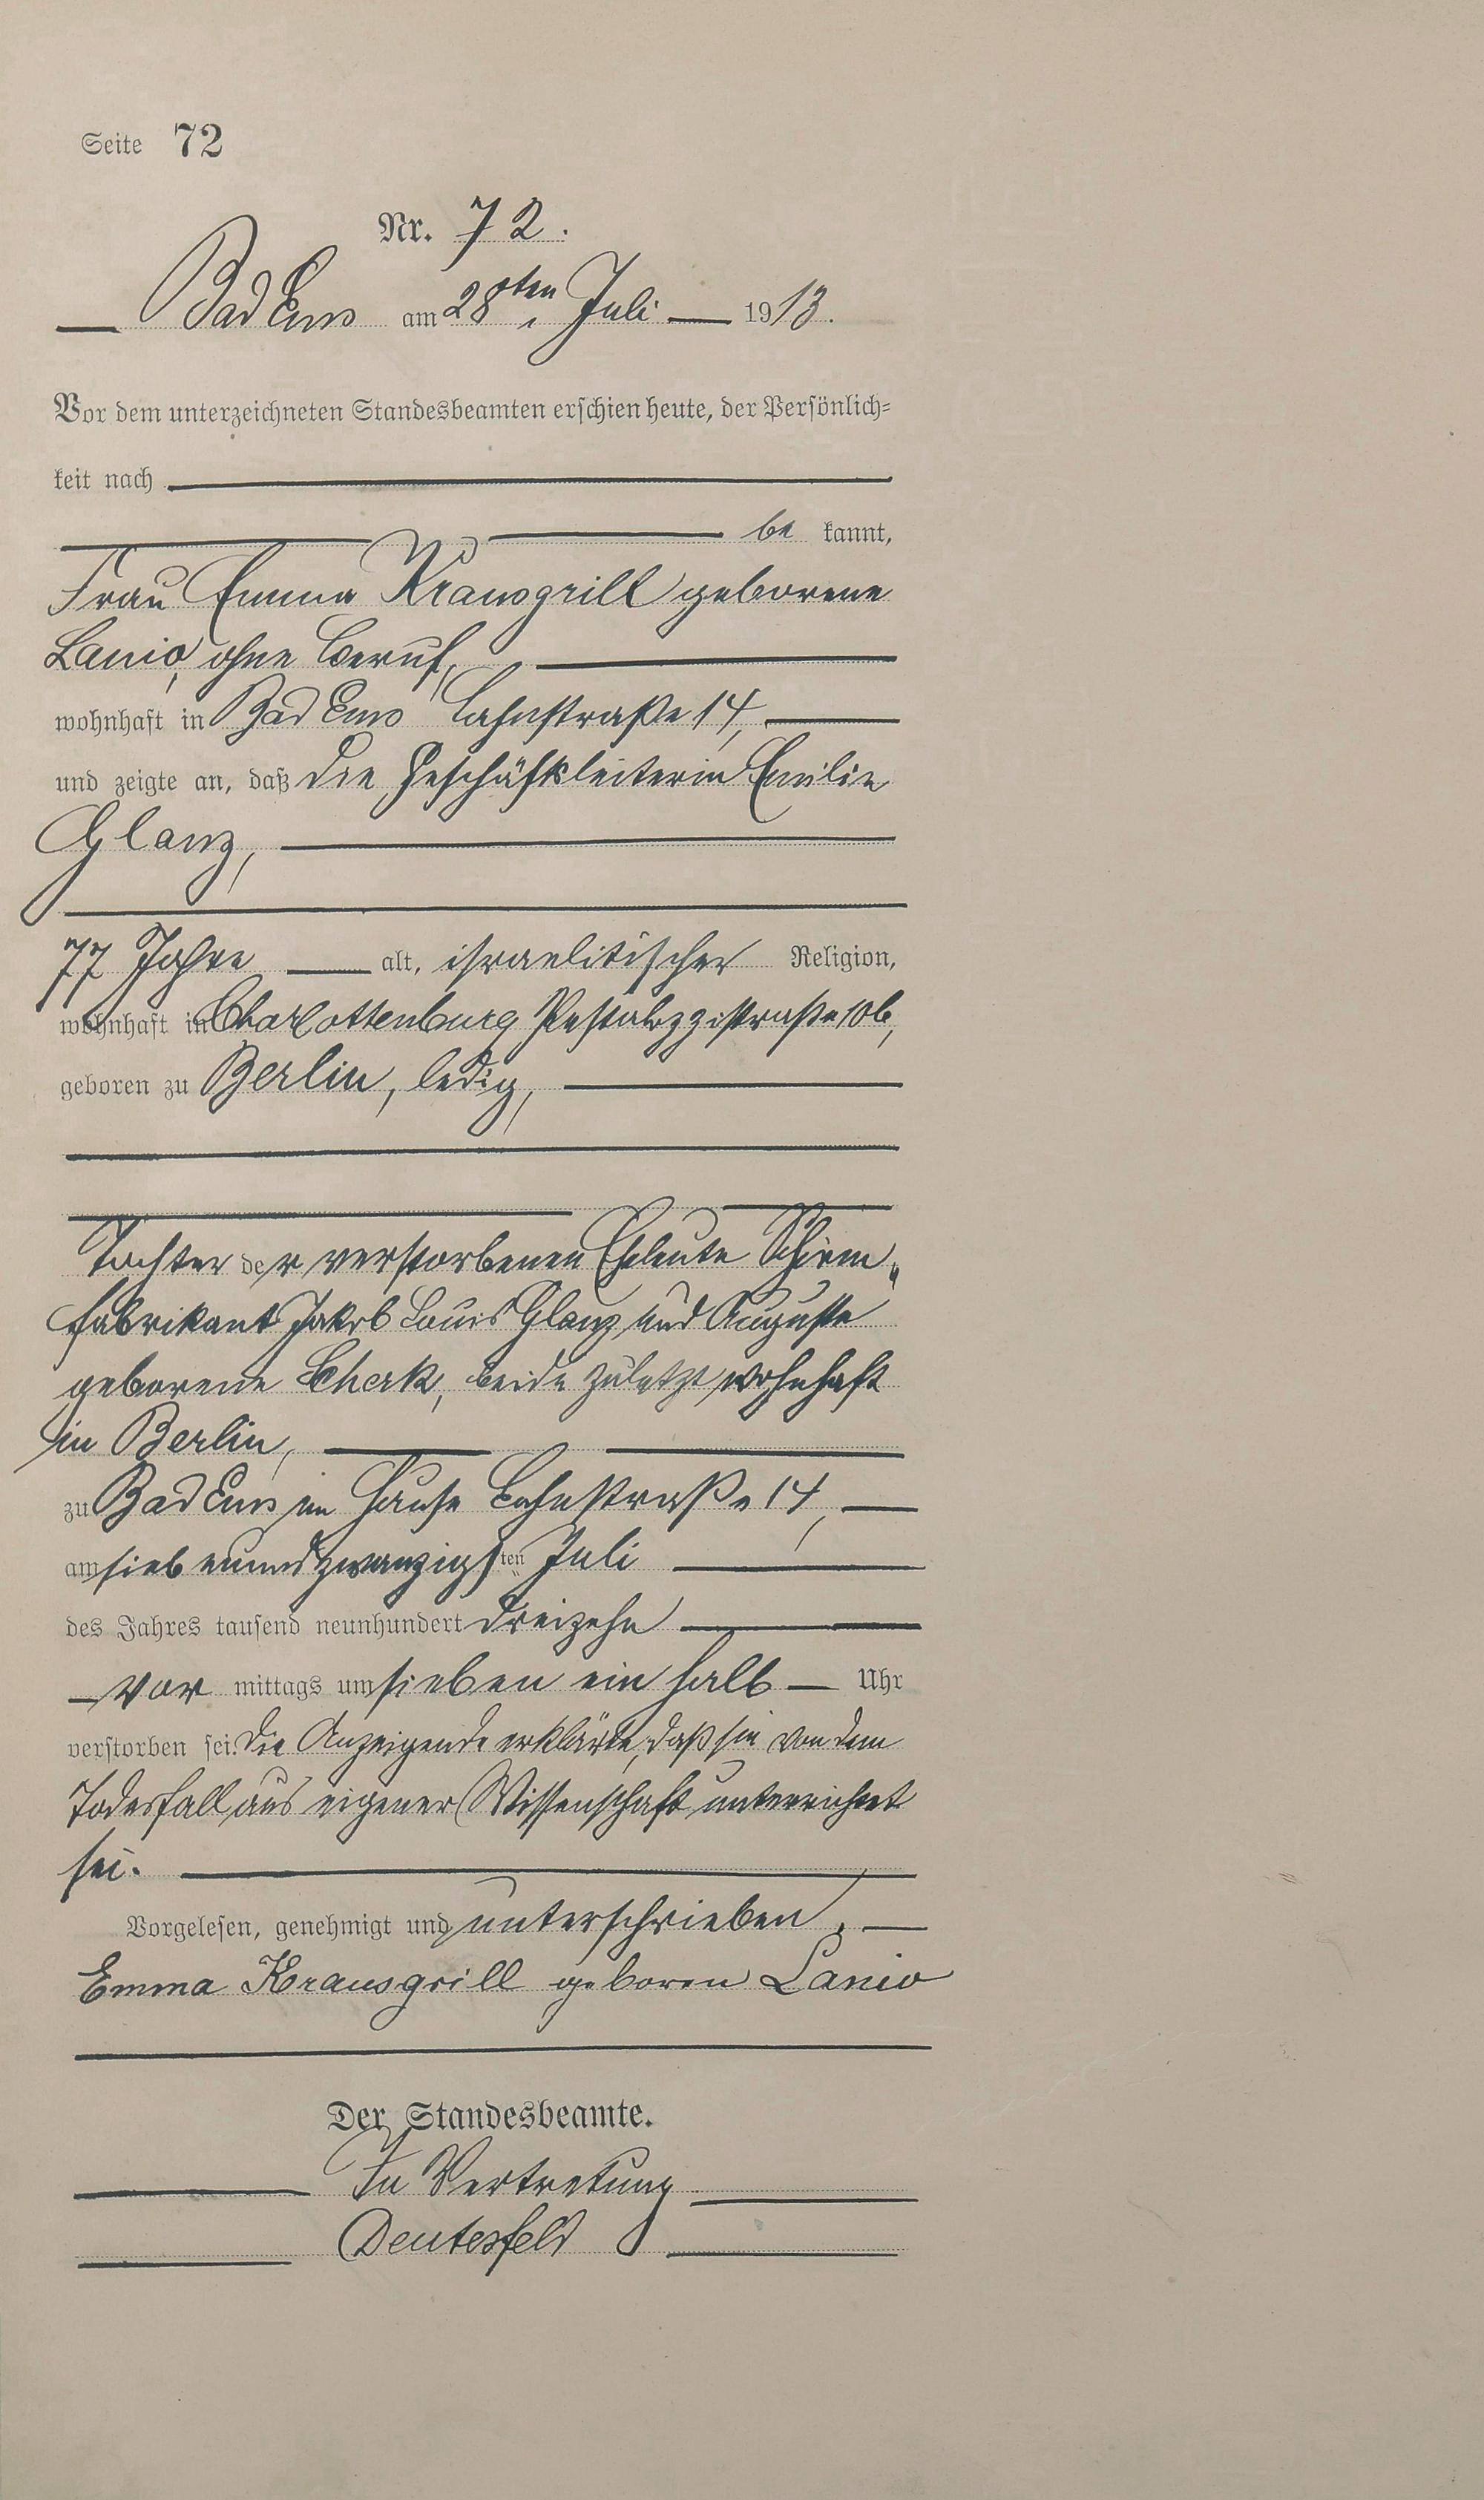 Seite 72
Nr. 72.
Bad Ems am 28ten Juli 1913.
Vor dem unterzeichneten Standesbeamten erschien heute, der Persönlich=
keit nach
be kannt,
Frau Emma Krausgrill geborene
Lanio, ohne Beruf,
wohnhaft in Bad Ems Lahnstraße 14,
und zeigte an, daß die Geschäftsleiterin Emilie
Glanz,
77 Jahre alt, israelitischer Religion,
wohnhaft in Charlottenburg Pestalozzistraße 10b,
geboren zu Berlin, ledig,
Tochter der verstorbenen Eheleute Schirm„
fabrikant Jakob Louis Glanz und Auguste
geborene Cherk, beide zuletzt wohnhaft
in Berlin,
zu Bad Ems im Hause Lahnstraße 14,
am siebenundzwanzigsten Juli
des Jahres tausend neunhundert dreizehn
vor mittags um sieben ein halb Uhr
verstorben sei. Die Anzeigende erklärte, daß sie von dem
Todesfall aus eigener Wissenschaft unterrichtet
sei.
Vorgelesen, genehmigt und unterschrieben.
Emma Krausgrill geboren Lanio
Der Standesbeamte.
In Vertretung
Deutesfeld